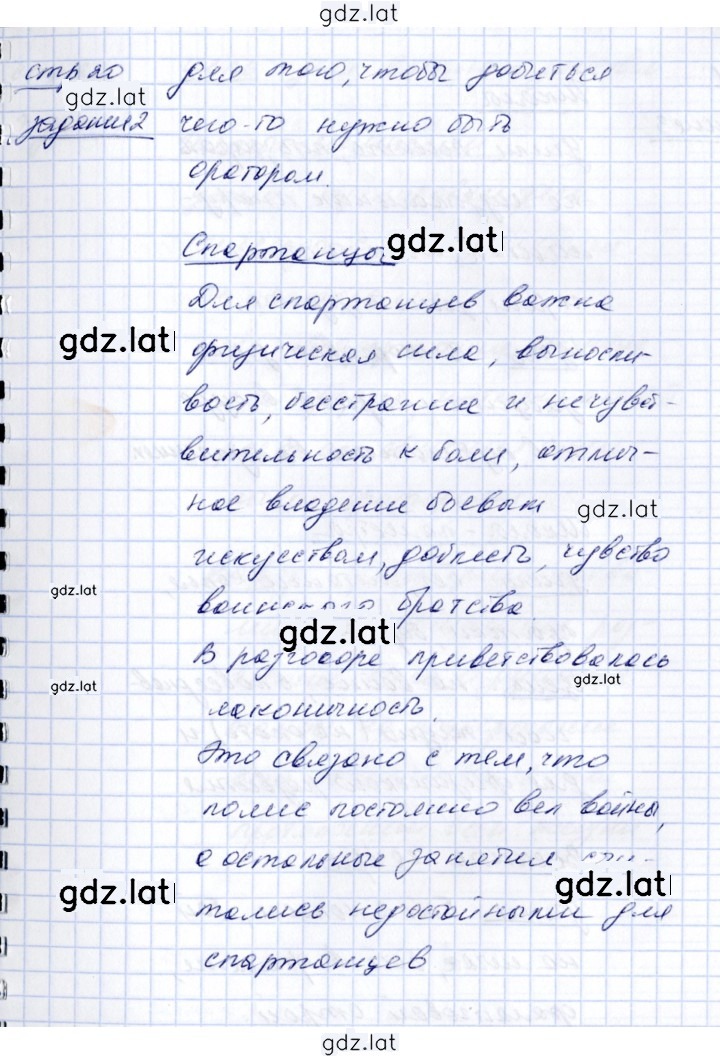 gdz.lat
стр 20 для того, чтобы добиться
gdz.lat
задание 2 чего-то нужно быть
оратором.
Спартанцы gdz.lat
Для спартанцев важна
gdz.lat физическая сила, выносли-
вость, бесстрашие и нечувст-
вительность к боли, отлич-
ное владение боевым gdz.lat
искусствам, доблесть, чувство
gdz.lat
воинского братства.
gdz.lat
В разговоре приветствовалась
gdz.lat gdz.lat
лаконичность.
Это связано с тем, что
полис постоянно вел войны,
а остальные занятия счи-
gdz.lat gdz.lat
тались недостойными для
спартанцев
gdz.lat